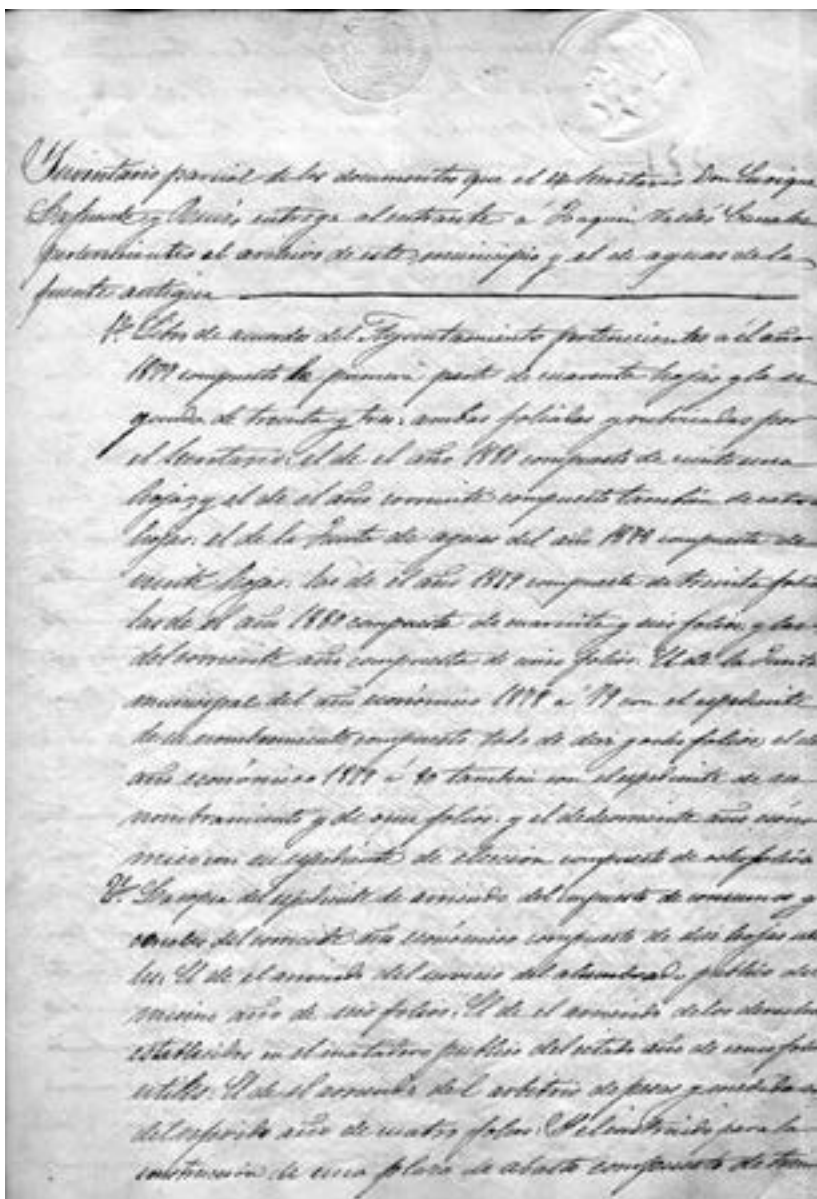 Inventario parcial de los documentos que el Secretario Don Enrique
y entrega al entrante a Joaquin Valdés
pertenecientes al archivo de este municipio y el de aguas de la
fuente antigua
1º Libro de acuerdos del Ayuntamiento pertenecientes a él año
1879 compuesto la primera parte de cuarenta hojas y la se
gunda de treinta y tres, ambas foliadas y rubricadas por
el Secretario: el de el año 1880 compuesto de veinte una
hojas, y el de el año corriente compuesto tambien de
hojas: el de la Junta de aguas del año 1878 compuesto de
veinte hojas. las de el año 1879 compuesto de treinta folios
las de el año 1880 compuesto de cuarenta y seis folios, y las
del corriente año compuesto de folios. El de la Junta
municipal del año económico 1878 a 79 con el espediente
de su nombramiento compuesto todo de diez y ocho folios, el de
año económico 1879 á 80 tambien con el espediente de su
nombramiento y de once folios. y el del corriente año econo
mico con su espediente de eleccion compuesto de ocho folios
2º La copia del espediente de arriendo del impuesto de consumos y
cereales del corriente año económico compuesto de diez hojas uti
les. El de el arriendo del servicio del alumbrado publico del
mismo año de seis folios. El de el arriendo de los derechos
establecidos en el matadero publico del citado año de cinco folios
utiles. El de el arriendo del arbitrio de pesas y medidas
del repetido año de cuatro folios. El instruido para la
construccion de una plaza de abasto compuesto de